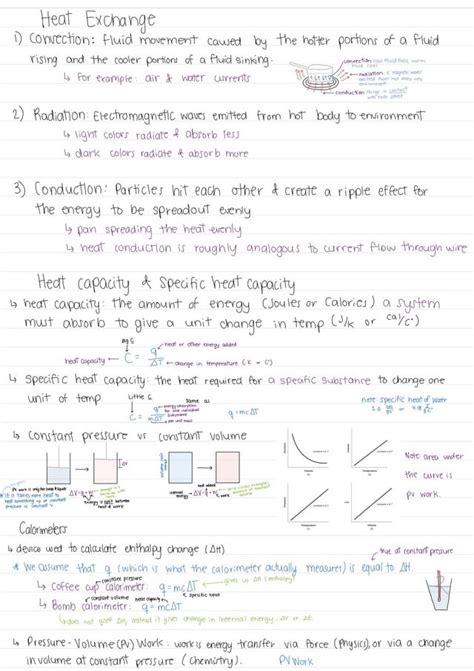 Heat Exchange
1) Convection: fluid movement caused by the hotter portions of a fluid
rising and the cooler portions of a fluid sinking.
↳ For example: air & water currents
2) Radiation: Electromagnetic waves emitted from hot body to environment
↳ light colors radiate & absorb less
↳ dark colors radiate & absorb more
3) Conduction: Particles hit each other & create a ripple effect for
the energy to be spreadout evenly
↳ pan spreading the heat evenly
↳ heat conduction is roughly analogous to current flow through wire
Heat capacity & Specific heat capacity
↳ heat capacity: the amount of energy (Joules or Calories) a system
must absorb to give a unit change in temp (J/K or cal/c°)
Big C
heat capacity ← C = q/ΔT
heat or other energy added
change in temperature (K = C°)
↳ Specific heat capacity: the heat required for a specific substance to change one
unit of temp
little C
same as
q=mCΔT
note specific heat of water
↳ Constant pressure vs constant volume
Note area under
the curve is
PV work.
Calorimeters
↳ device used to calculate enthalpy change (ΔH)
true at constant pressure
* We assume that q (which is what the calorimeter actually measures) is equal to ΔH.
constant pressure
↳ Coffee cup calorimeter: q=mCΔT
gives us ΔH (enthalpy)
constant volume
heat capacity
specific heat
↳ Bomb calorimeter: q=mCΔT
↳ does not give ΔH, instead it gives change in internal energy. ΔU or ΔE.
↳ Pressure-Volume (PV) Work: work is energy transfer via force (Physics), or via a change
in volume at constant pressure (chemistry).
PV Work